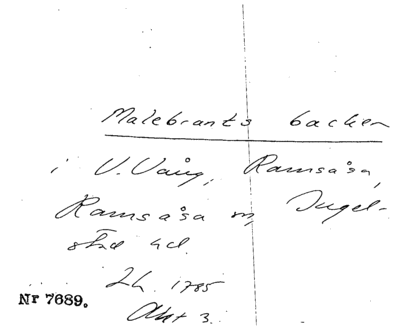 Malebrants backen
i V. Vång, Ramsåsa,
Ramsåsa sn, Ingel-
stad hd.
Lh. 1785
Akt 3.
Nr 7689.